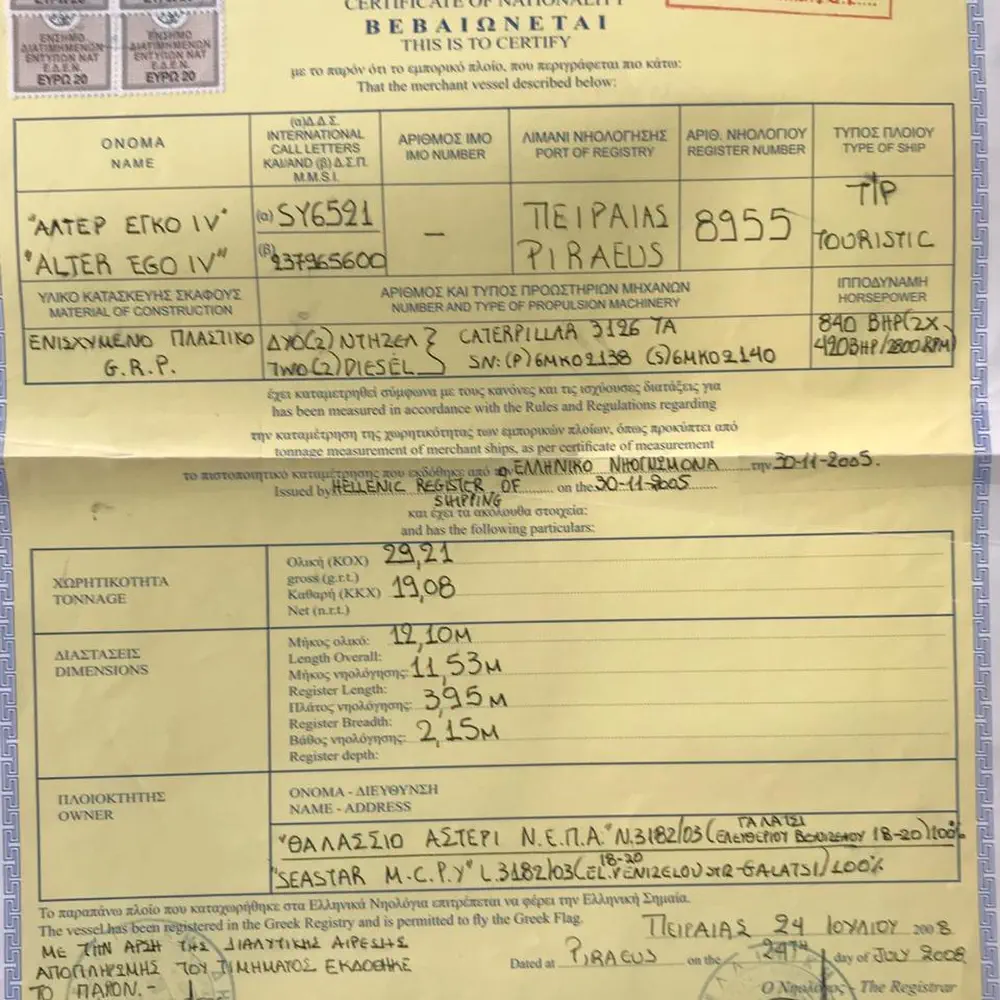 CERTIFICATE OF NATIONALITY
ΒΕΒΑΙΩΝΕΤΑΙ
THIS IS TO CERTIFY
ΕΝΣΗΜΟ
ΔΙΑΤΙΜΗΜΕΝΩΝ
ΕΝΤΥΠΩΝ ΝΑΤ
Ε.Δ.Ε.Ν.
ΕΥΡΩ 20
ΕΝΣΗΜΟ
ΔΙΑΤΙΜΗΜΕΝΩΝ
ΕΝΤΥΠΩΝ ΝΑΤ
Ε.Δ.Ε.Ν.
ΕΥΡΩ 20
με το παρόν ότι το εμπορικό πλοίο, που περιγράφεται πιο κάτω:
That the merchant vessel described below:
ΟΝΟΜΑ
NAME
(α)Δ.Δ.Σ.
INTERNATIONAL
CALL LETTERS
ΚΑΙ/AND (β) Δ.Σ.Π.
M.M.S.I.
ΑΡΙΘΜΟΣ ΙΜΟ
IMO NUMBER
ΛΙΜΑΝΙ ΝΗΟΛΟΓΗΣΗΣ
PORT OF REGISTRY
ΑΡΙΘ. ΝΗΟΛΟΓΙΟΥ
REGISTER NUMBER
ΤΥΠΟΣ ΠΛΟΙΟΥ
TYPE OF SHIP
"ΑΛΤΕΡ ΕΓΚΟ IV"
"ALTER EGO IV"
(α) SY6521
(β) 237965600
—
ΠΕΙΡΑΙΑΣ
PIRAEUS
8955
Τ/Ρ
TOURISTIC
ΥΛΙΚΟ ΚΑΤΑΣΚΕΥΗΣ ΣΚΑΦΟΥΣ
MATERIAL OF CONSTRUCTION
ΑΡΙΘΜΟΣ ΚΑΙ ΤΥΠΟΣ ΠΡΟΩΣΤΗΡΙΩΝ ΜΗΧΑΝΩΝ
NUMBER AND TYPE OF PROPULSION MACHINERY
ΙΠΠΟΔΥΝΑΜΗ
HORSEPOWER
ΕΝΙΣΧΥΜΕΝΟ ΠΛΑΣΤΙΚΟ
G.R.P.
ΔΥΟ(2) ΝΤΗΖΕΛ } CATERPILLAR 3126 TA
TWO(2) DIESEL } SN: (P) 6MK02138 (S) 6MK02140
840 BHP(2X
420BHP/2800 RPM)
έχει καταμετρηθεί σύμφωνα με τους κανόνες και τις ισχύουσες διατάξεις για
has been measured in accordance with the Rules and Regulations regarding
την καταμέτρηση της χωρητικότητας των εμπορικών πλοίων, όπως προκύπτει από
tonnage measurement of merchant ships, as per certificate of measurement
το πιστοποιητικό καταμέτρησης που εκδόθηκε από τον ΕΛΛΗΝΙΚΟ ΝΗΟΓΝΩΜΟΝΑ την 30-11-2005.
Issued by HELLENIC REGISTER OF on the 30-11-2005
SHIPPING
και έχει τα ακόλουθα στοιχεία:
and has the following particulars:
ΧΩΡΗΤΙΚΟΤΗΤΑ
TONNAGE
Ολική (ΚΟΧ) 29,21
gross (g.r.t.)
Καθαρή (ΚΚΧ) 19,08
Net (n.r.t.)
ΔΙΑΣΤΑΣΕΙΣ
DIMENSIONS
Μήκος ολικό: 12,10Μ
Length Overall:
Μήκος νηολόγησης: 11,53Μ
Register Length:
Πλάτος νηολόγησης: 3,95Μ
Register Breadth:
Βάθος νηολόγησης: 2,15Μ
Register depth:
ΠΛΟΙΟΚΤΗΤΗΣ
OWNER
ΟΝΟΜΑ - ΔΙΕΥΘΥΝΣΗ
NAME - ADDRESS
ΓΑΛΑΤΣΙ
"ΘΑΛΑΣΣΙΟ ΑΣΤΕΡΙ Ν.Ε.Π.Α." Ν.3182/03 (ΕΛΕΥΘΕΡΙΟΥ ΒΕΝΙΖΕΛΟΥ 18-20) 100%
18-20
"SEASTAR M.C.P.Y" L.3182/03 (EL.VENIZELOU STR-GALATSI) 100%
Το παραπάνω πλοίο που καταχωρήθηκε στα Ελληνικά Νηολόγια επιτρέπεται να φέρει την Ελληνική Σημαία.
The vessel has been registered in the Greek Registry and is permitted to fly the Greek Flag.
ΜΕ ΤΗΝ ΑΡΣΗ ΤΗΣ ΔΙΑΛΥΤΙΚΗΣ ΑΙΡΕΣΗΣ
ΑΠΟΠΛΗΡΩΜΗΣ ΤΟΥ ΤΙΜΗΜΑΤΟΣ ΕΚΔΟΘΗΚΕ
ΤΟ ΠΑΡΟΝ.-
ΠΕΙΡΑΙΑΣ 24 ΙΟΥΛΙΟΥ 2008
Dated at PIRAEUS on the 24TH day of JULY 2008
Ο Νηολόγος - The Registrar